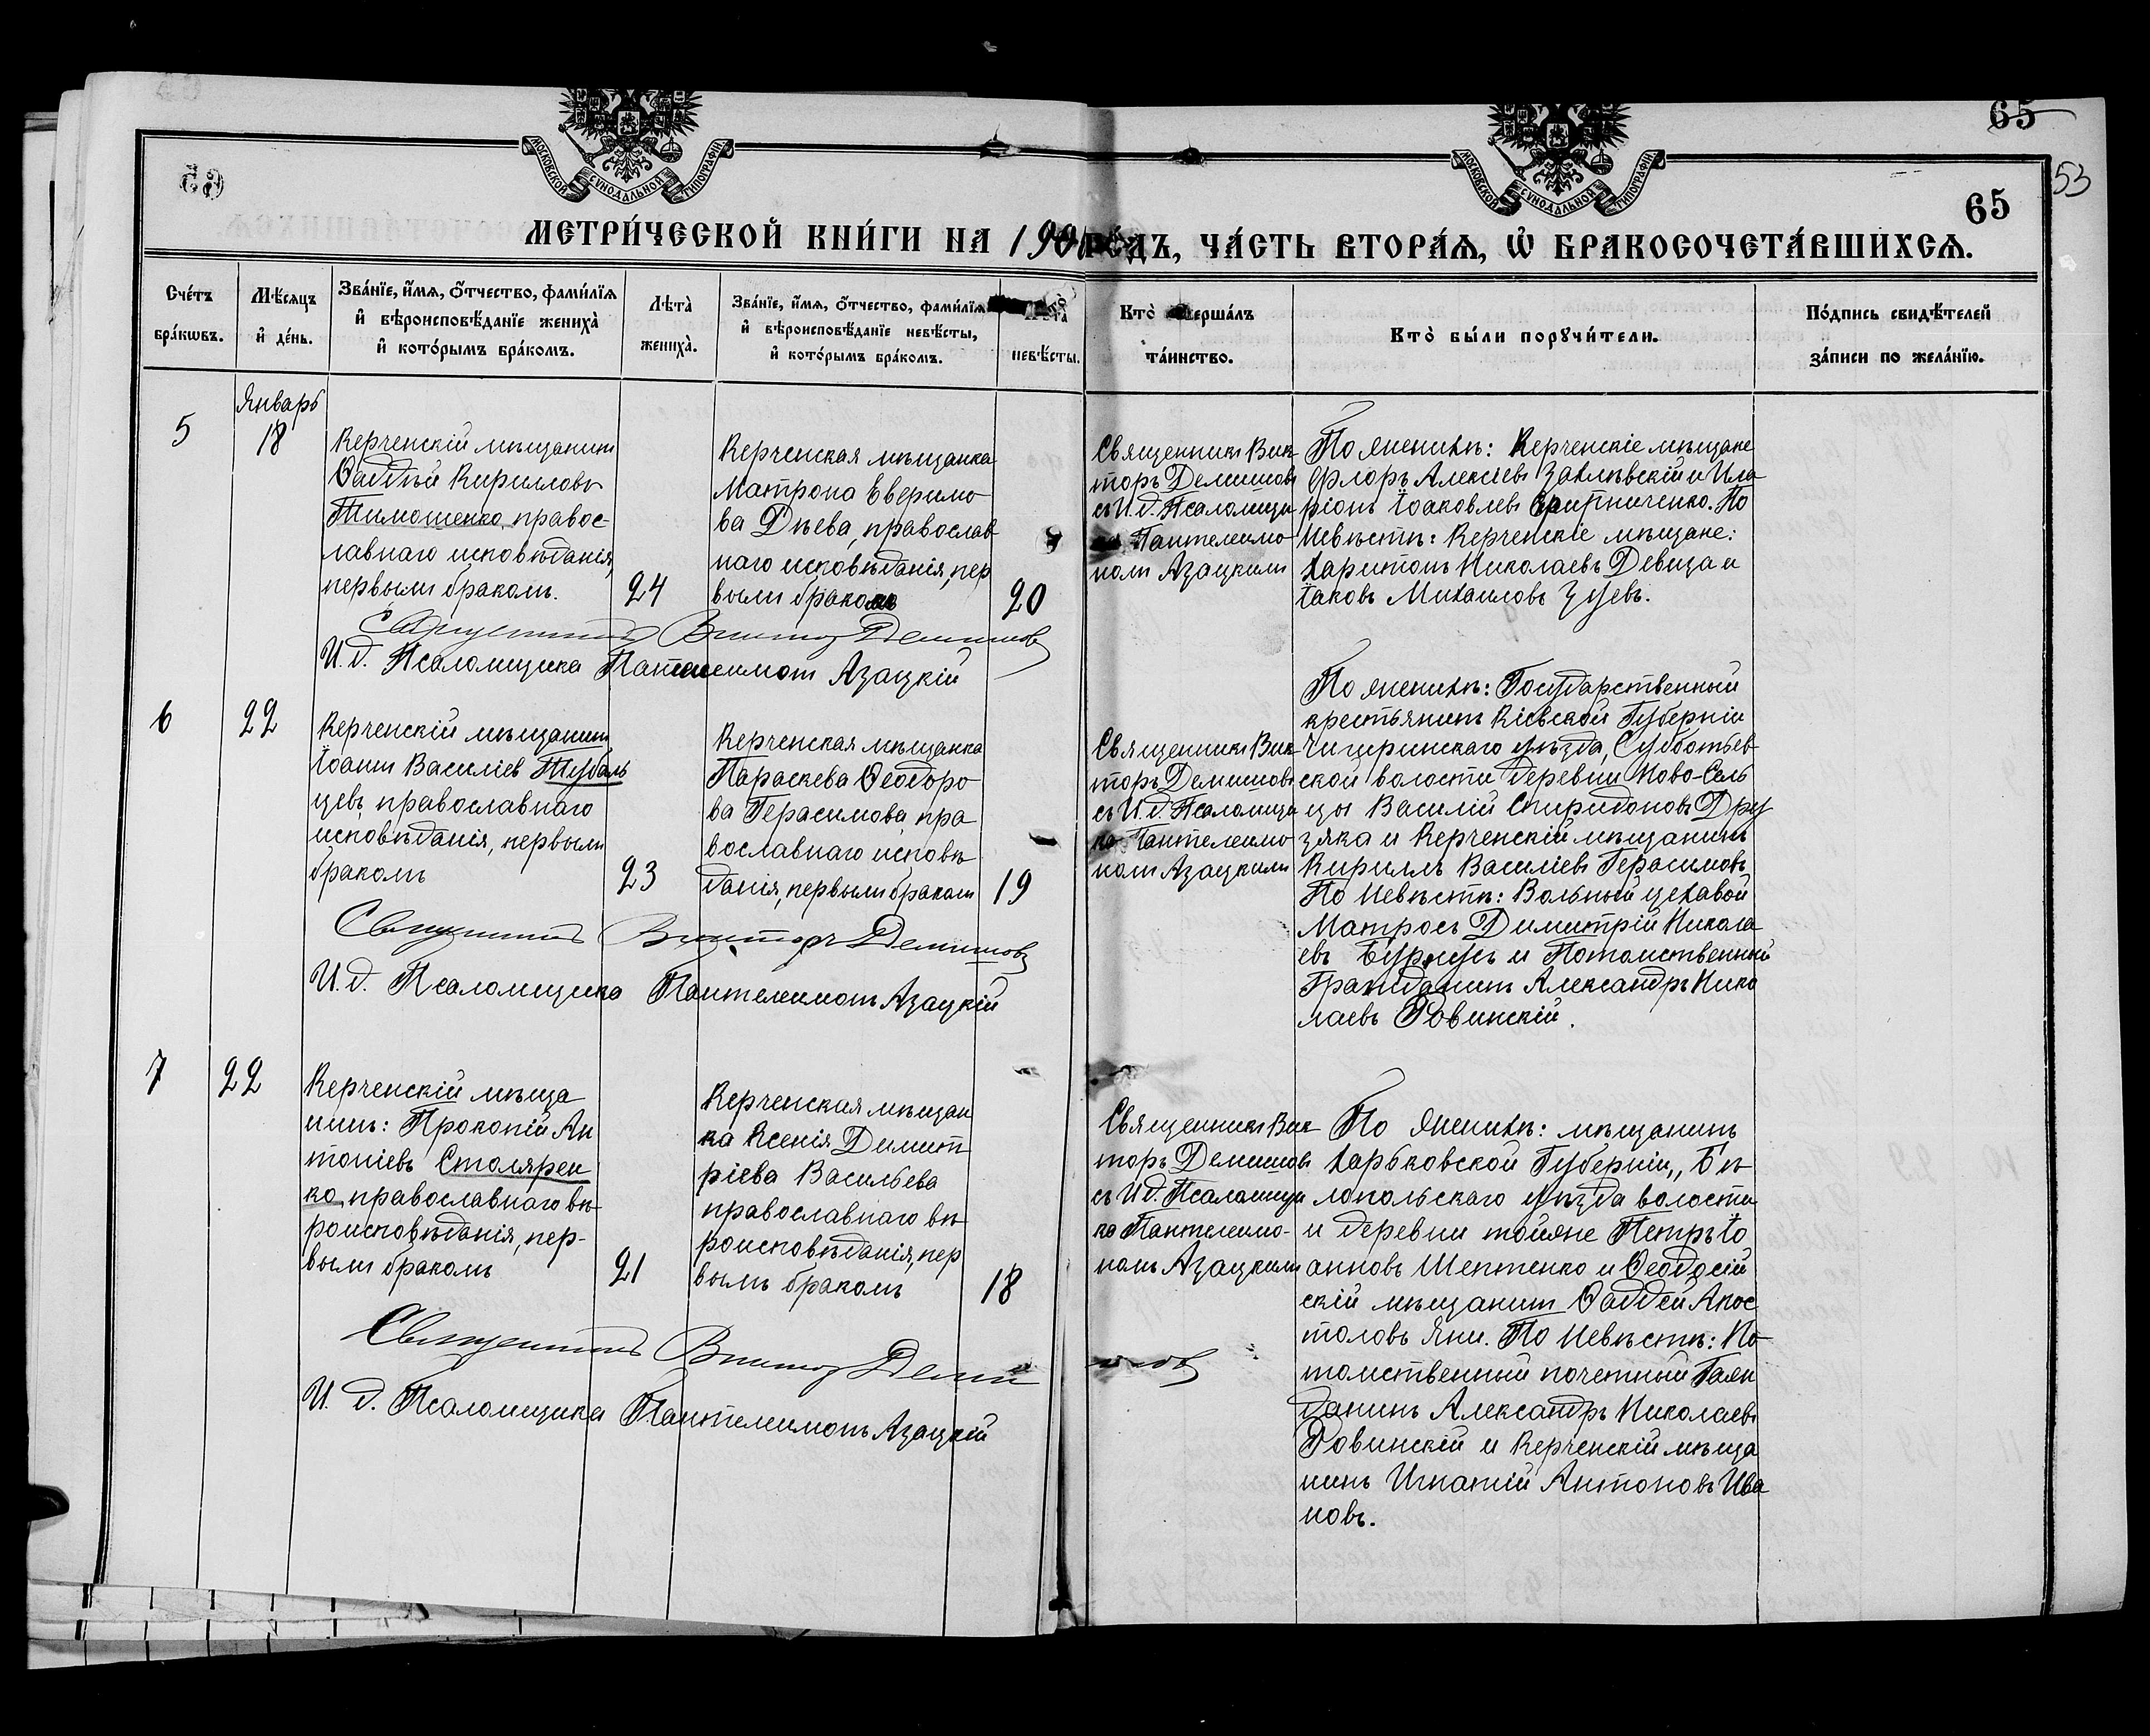 МОСКОВСКОЙ СУНОДАЛЬНОЙ ТИПОГРАФІИ
МОСКОВСКОЙ СУНОДАЛЬНОЙ ТИПОГРАФІИ
65
53
65
МЕТРИ́ЧЕСКОЙ КНИ́ГИ НА 190 ГО́ДЪ, ЧА́СТЬ ВТОРА́Ѧ, Ѡ҆ БРАКОСОЧЕТА́ВШИХСѦ.
Сче́тъ
бра́кѡвъ.
Мѣ́сѧцъ
и҆ де́нь.
Зва́нїе, и҆́мѧ, ѻ҆́тчество, фами́лїѧ
и҆ вѣроисповѣ́данїе жениха̀
и҆ кото́рымъ бра́комъ.
Лѣта̀
жениха̀.
Зва́нїе, и҆́мѧ, ѻ҆́тчество, фами́лїѧ
и҆ вѣроисповѣ́данїе невѣ́сты,
и҆ кото́рымъ бра́комъ.
Лѣта̀
невѣ́сты.
Кто̀ соверша́лъ
та́инство.
Кто̀ бы́ли порꙋчи́тели.
По́дпись свидѣ́телей
за́писи по жела́нїю.
Январь
5
18
Керченскій мѣщанинъ
Ѳаддѣй Кирилловъ
Тимошенко, правос-
лавнаго исповѣданія,
первымъ бракомъ.
24
Керченская мѣщанка
Матрона Ефимо
ва Дѣева, православ
наго исповѣданія, пер
вымъ бракомъ
20
Священникъ Вик-
торъ Демишовъ
съ И.д. Псаломщи
ка Пантелеимо-
номъ Азацкимъ
По женихѣ: Керченскіе мѣщане
Флоръ Алексѣевъ Захлѣвскій и Ила
ріонъ Іоаковлевъ Скрипниченко. По
Невѣстѣ: Керченскіе мѣщане:
Харитонъ Николаевъ Девица и
Іаковъ Михаиловъ Зуевъ.
Священникъ Викторъ Демишовъ
И.д. Псаломщика Пантелеимонъ Азацкій
6
22
Керченскій мѣщанинъ
Іоаннъ Василіевъ Тубаль
цевъ, православнаго
исповѣданія, первымъ
бракомъ
23
Керченская мѣщанка
Параскева Ѳеодоро
ва Герасимова, пра
вославнаго исповѣ
данія, первымъ бракомъ
19
Священникъ Вик-
торъ Демишовъ
съ И.д. Псаломщи
ка Пантелеимо-
номъ Азацкимъ
По женихѣ: Государственный
крестьянинъ Кіевской Губерніи
Чигиринскаго уѣзда, Субботьев-
ской волости деревни Ново-Сель
цы Василій Спиридоновъ Дру
зяка и Керченскій мѣщанинъ
Кириллъ Василіевъ Герасимовъ
По Невѣстѣ: Вольный цеховой
Матросъ Димитрій Никола
евъ Бурнусъ и Потомственный
Гражданинъ Александръ Нико
лаевъ Ровинскій.
Священникъ Викторъ Демишовъ
И.д. Псаломщика Пантелеимонъ Азацкій
7
22
Керченскій мѣща
нинъ: Прокопій Ан
тоніевъ Столярен
ко, православнаго вѣ-
роисповѣданія, пер-
вымъ бракомъ
21
Керченская мѣщан
ка Ксенія Димит
ріева Васильева
православнаго вѣ-
роисповѣданія, пер
вымъ бракомъ
18
Священникъ Вик-
торъ Демишовъ
съ И.д. Псаломщи
ка Пантелеимо-
номъ Азацкимъ
По женихѣ: мѣщанинъ
Харьковской Губерніи, Бѣ-
лопольскаго уѣзда волости
и деревни тойже Петръ Іо
анновъ Шептенко и Ѳеодосій
скій мѣщанинъ Ѳаддей Апос
толовъ Яни. По Невѣстѣ: По-
томственный почетный Граж
данинъ Александръ Николаевъ
Ровинскій и Керченскій мѣща
нинъ Игнатій Антоновъ Ива
новъ.
Священникъ Викторъ Демишовъ
И.д. Псаломщика Пантелеимонъ Азацкій